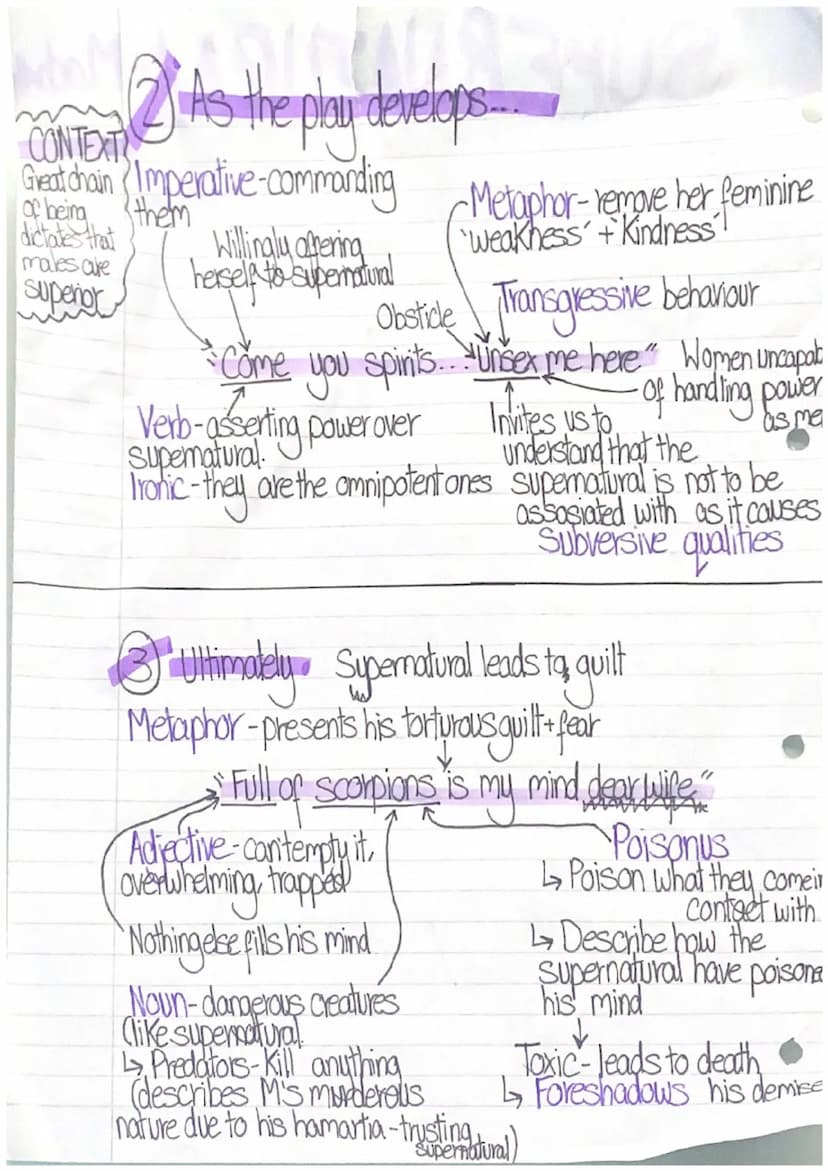 ② As the play develops...
CONTEXT
Great chain
of being
dictates that
males are
superior
Imperative-commanding
them
Willingly offering
herself to supernatural
Metaphor- remove her feminine
'weakness' + 'Kindness'
Transgressive behaviour
Obsticle
"Come you spirits... "Unsex me here"
Women uncapab
of handling power
as me
Verb-asserting power over
supernatural.
Ironic- they are the omnipotent ones
Invites us to
understand that the
supernatural is not to be
assosiated with as it causes
Subversive qualities
③ Ultimately Supernatural leads to guilt
Metaphor - presents his torturous guilt + fear
"Full of scorpions is my mind dear wife"
Adjective- can't empty it,
overwhelming, trapped
Nothing else fills his mind
Noun- dangerous creatures
(like supernatural.
↳ Predators- Kill anything
(describes M's murderous
nature due to his hamartia-trusting
supernatural)
Poisonus
↳ Poison what they come in
contact with
↳ Describe how the
supernatural have poisone
his mind
Toxic- leads to death
↳ Foreshadows his demise